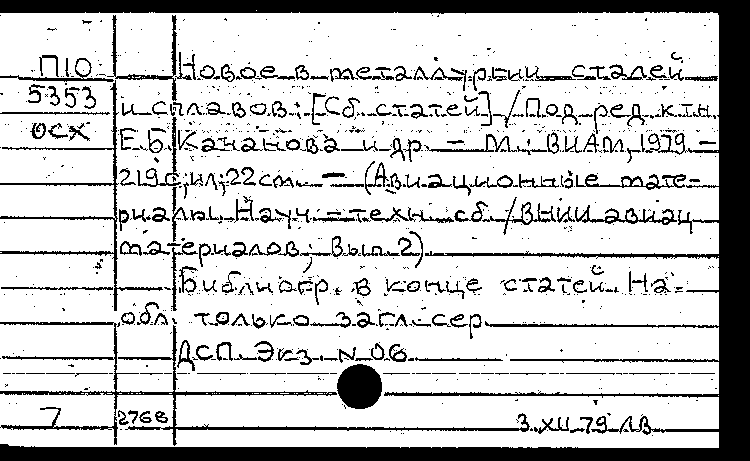 П10 Новое в металлургии сталей
5353 и сплавов: [Сб. статей] / Под ред. к.т.н.
ОСХ Е.Б. Качанова и др. – М.: ВИАМ, 1979. –
219 с.; ил.; 22 см. – (Авиационные мате-
риалы. Науч.-техн. сб. / ВНИИ авиац.
материалов; Вып. 2).
Библиогр. в конце статей. На
обл. только загл. сер.
ДСП. Экз. N 06
7 276в 3.XII.79 ЛВ